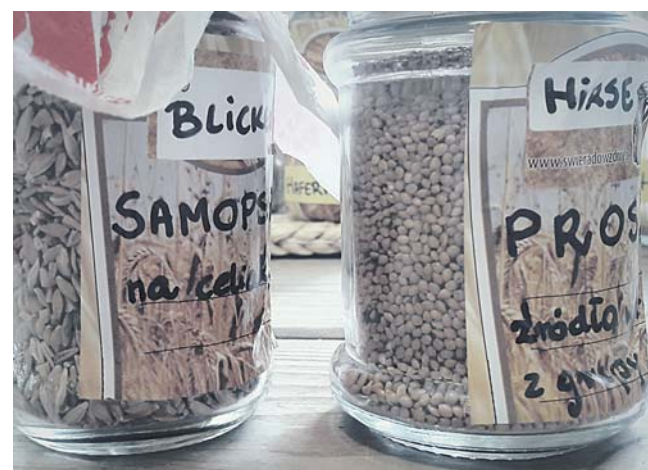 BLICK
SAMOPS
na celia
HAFER
HIRSE
www.swieradowzdr
PROS
źródło
z grupy